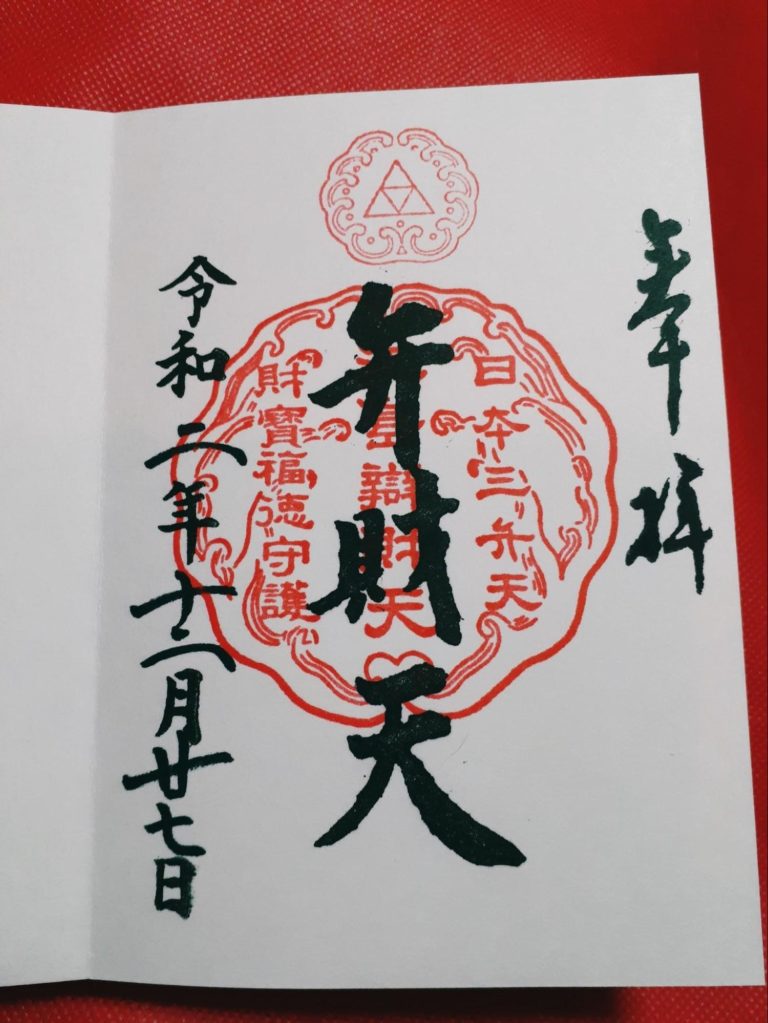 奉拝
日本三弁天
島辯財天
財寶福徳守護
弁財天
令和二年十二月廿七日